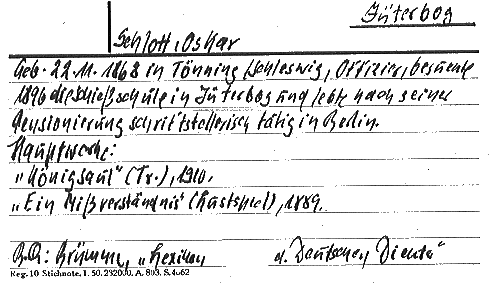 Jüterbog
Schlott, Oskar
Geb. 22.11.1868 in Tönning Schleswig, Offizier, besuchte
1896 die Schießschule in Jüterbog und lebte nach seiner
Pensionierung schriftstellerisch tätig in Berlin.
Hauptwerke:
„Königsaut" (Tr.), 1910.
„Ein Mißverständnis" (Lustspiel), 1889.
Brümmer, „Lexikon d. Deutschen Dichter"
Reg. 10 Stichnote. 1. 50. 23200. A. 803. S.4062